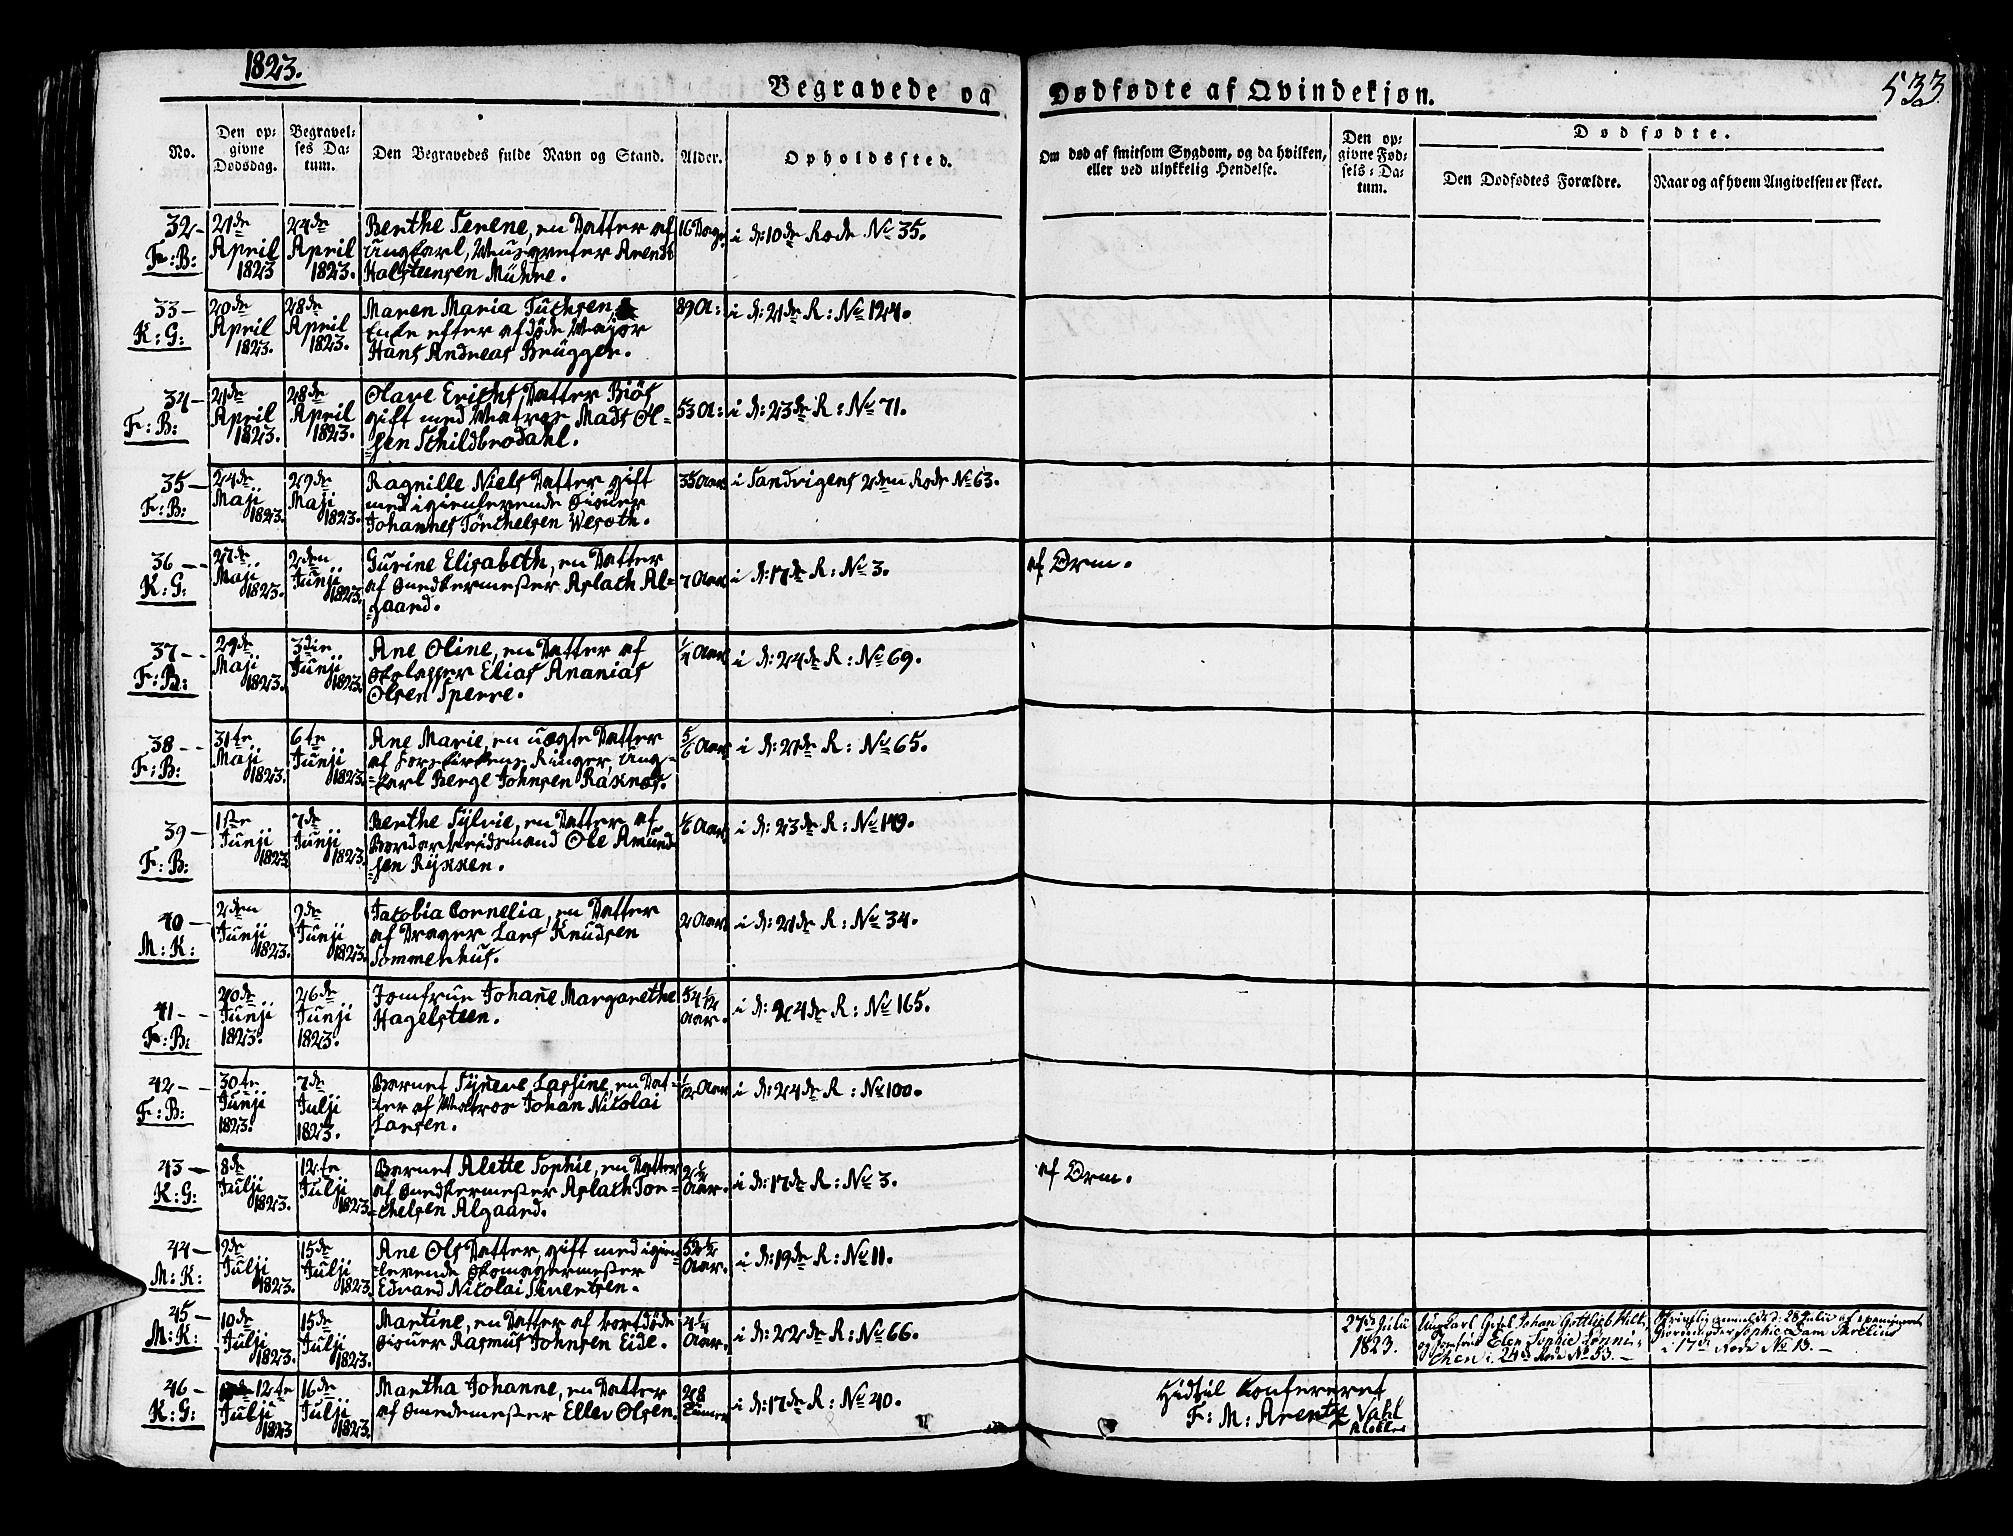 1823.
533.
Begravede og Dødfødte af Qvindekjøn.
No.
Den op-
givne
Dødsdag.
Begravel-
ses Da-
tum.
Den Begravedes fulde Navn og Stand.
Alder.
Opholdssted.
Om død af smitsom Sygdom, og da hvilken,
eller ved ulykkelig Hendelse.
Den op-
givne Fød-
sels-Da-
tum.
Dødfødte.
Den Dødfødtes Forældre.
Naar og af hvem Angivelsen er skeet.
32-
F: B:
21de
April
1823
24de
April
1823.
Berthe Serene, en Datter af
Ungkarl, Arends
Holsteensen
16 Dage
i d: 10de Rode No 35.
33-
K: G:
20de
April
1823.
28de
April
1823.
Maren Maria Tuchsen,
Enke efter afdøde Major
Hans Andreas Brügger.
89 A:
i d: 21de R: No 124.
34-
F: B:
21de
April
1823.
28de
April
1823.
Olave Erichs Datter
gift med Matros Mads Ol-
sen Schildbrodahl.
53 A:
i d: 23de R: No 71.
35-
F: B:
24de
Maji
1823.
29de
Maji
1823.
Ragnille Niels Datter gift
med igienlevende
Johannes Torchelsen
35 Aar
i Sandvigens 2den Rode No 63.
36-
K: G:
27de
Maji
1823.
2den
Junji
1823.
Gurine Elisabeth, en Datter
af Smedkermester Aslach Al-
gaard.
7 Aar
i d: 17de R: No 3.
af Orm.
37-
F: B:
29de
Maji
1823.
3die
Junji
1823.
Ane Oline, en Datter af
Elias Ananias
Olsen Sperre.
1/4 Aar
i d: 24de R: No 69.
38-
F: B:
31te
Maji
1823.
6te
Junji
1823.
Ane Marie, en uægte Datter
af Ringer, Ung-
karl Berge Johnsen Raknæs.
5/6 Aar
i d: 21de R: No 65.
39-
F: B:
1ste
Junji
1823
7de
Junji
1823.
Berthe Sylvie, en Datter af
Bordarbeidsmand Ole Amund-
sen Rykken.
1/6 Aar
i d: 23de R: No 149.
40-
M: K:
2den
Junji
1823.
9de
Junji
1823.
Jacobia Cornelia, en Datter
af Drager Lars Knudsen
Sommerhus.
2 Aar
i d: 21de R: No 34.
41-
F: B:
20de
Junji
1823.
26de
Junji
1823.
Jomfrue Johane Margarethe
Hagelsteen.
54 1/12
Aar.
i d: 24de R: No 165.
42-
F: B:
30te
Junji
1823.
7de
Julji
1823.
Barnet Synneve Lassine, en Dat-
ter af Matros Johan Nicolai
Larsen.
1/12 Aar
i d: 24de R: No 100.
43-
K: G:
8de
Julji
1823.
12te
Julji
1823.
Barnet Alette Sophie, en Datter
af Smedkermester Aslach Tor-
chelsen Algaard.
2 1/2
Aar.
i d: 17de R: No 3.
af Orm.
44-
M: K:
9de
Julji
1823.
15de
Julji
1823.
Ane Ols Datter, gift med igien-
levende Skomagermester
Edvard Nicolai Sivertsen.
52 1/2
Aar.
i d: 19de R: No 11.
45-
M: K:
10de
Julji
1823.
15de
Julji
1823.
Martine, en Datter af bortdøde
Rasmus Johnsen Eide.
4 1/4
Aar.
i d: 22de R: No 66.
27d Julii
1823.
Ungkarl Johan Gottlieb
og Jomfrue Elen Sophie
i 24d Rode No 53.-
Skriftlig anmeldt d: 28 Julii af
Jordemoder Sophie Dam
i 17de Rode No 13.-
46-
K: G:
12te
Julji
1823
16de
Julji
1823.
Martha Johanne, en Datter
af Smedemester Eller Olsen.
28
Timer
i d: 17de R: No 40.
Hidtil Confereret
F: M: Arentz
Vahl